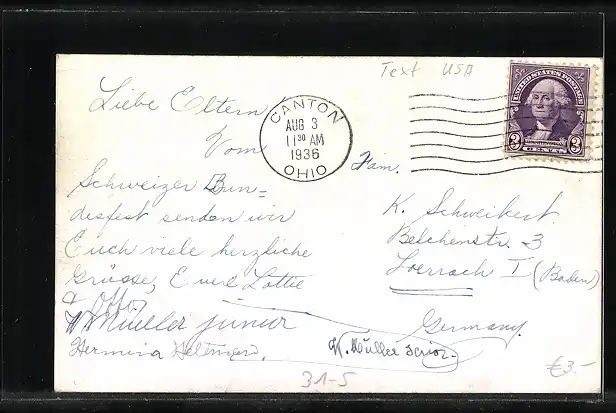 Text USA
UNITED STATES POSTAGE
3 3
CENTS
CANTON
AUG 3
11 30 AM
1936
OHIO
Liebe Eltern
Vom
Schweizer Bun=
desfest senden wir
Euch viele herzliche
Grüsse, Eure Lottie
& Otto
W Mueller junior
Hermina
K. Müller senior.
Fam.
K. Schweikert
Belchenstr. 3
Loerrach I (Baden)
Germany.
31-5
€3.-